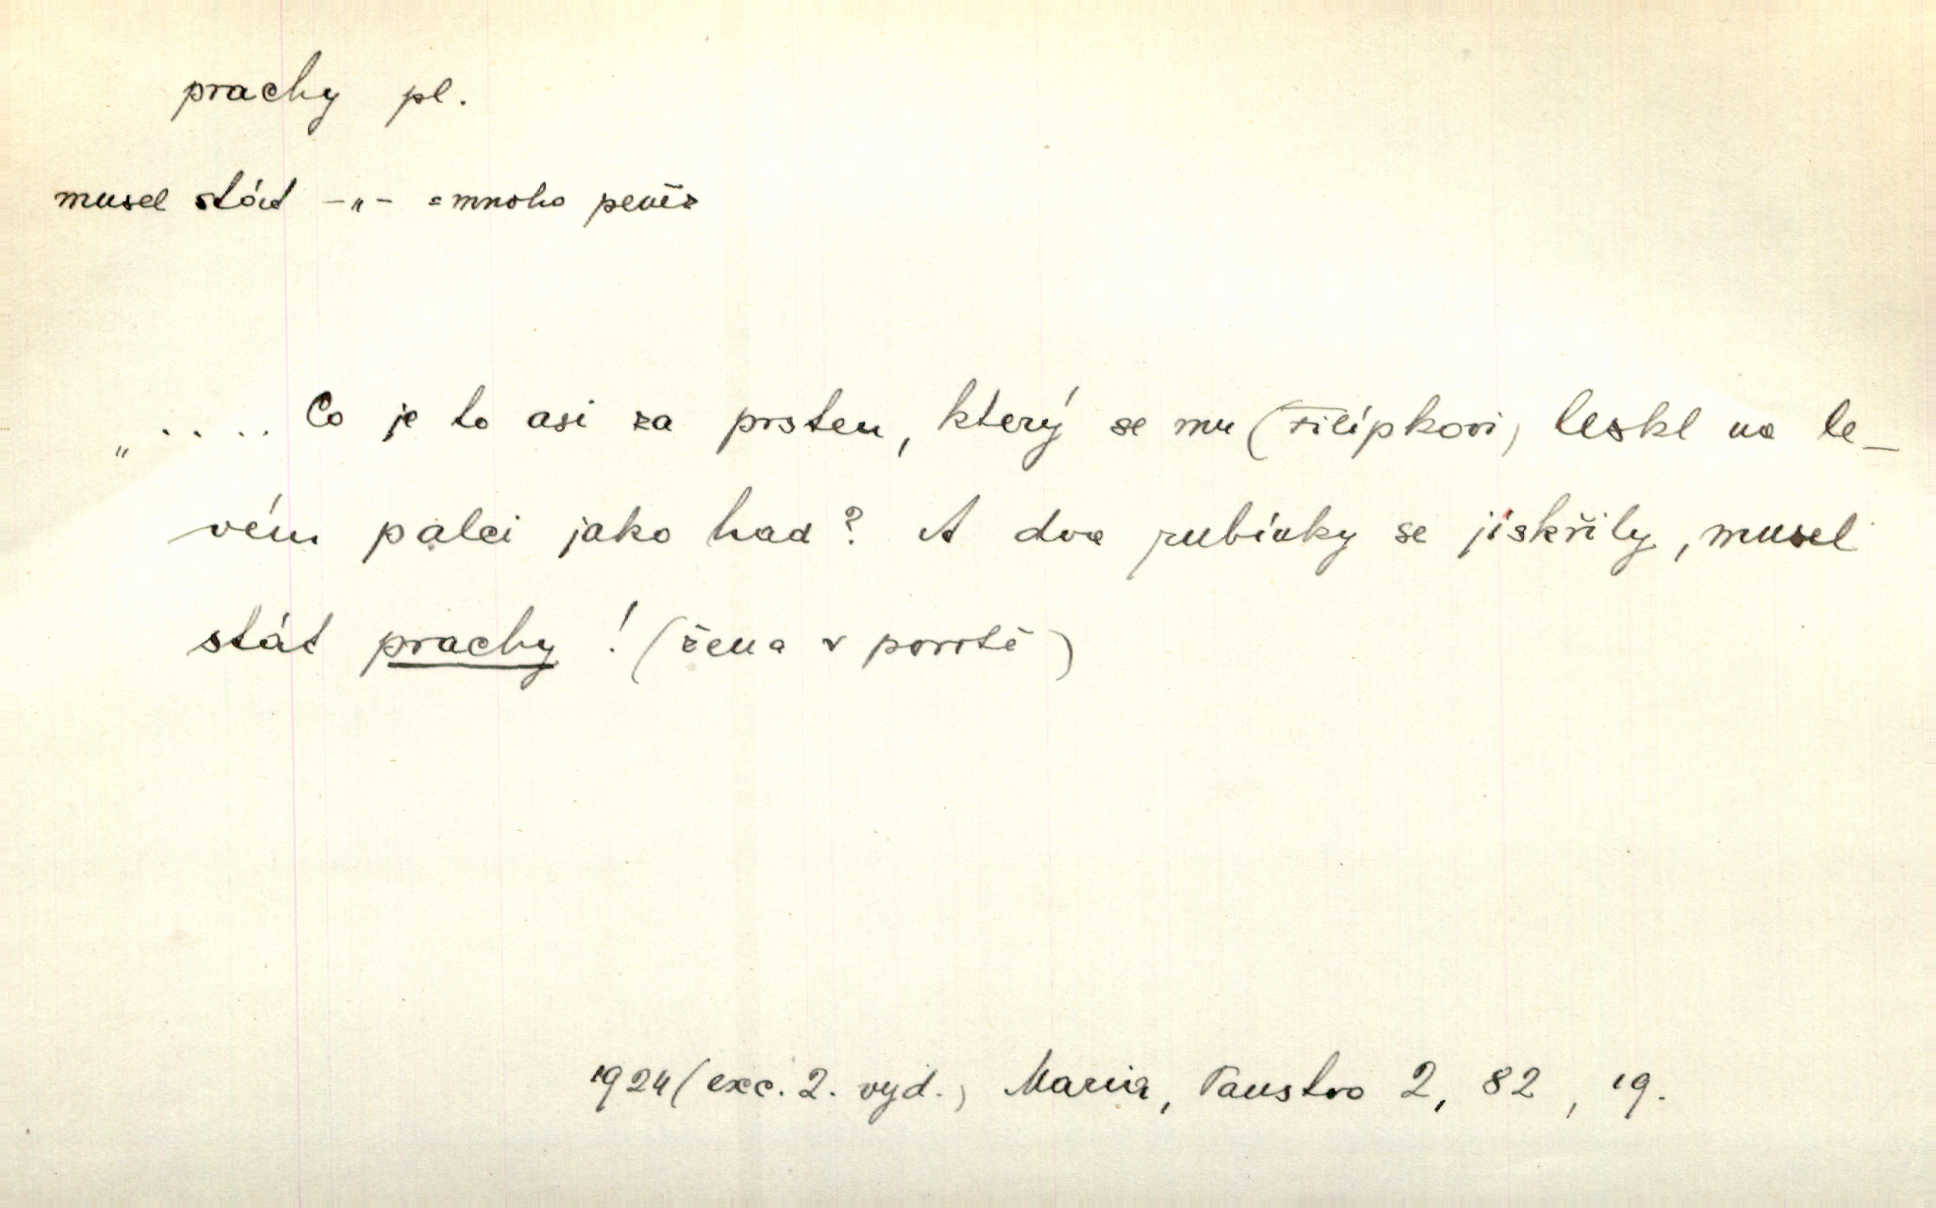 prachy pl.
musel stát -„- = mnoho peněz
„ . . . . Co je to asi za prsten, který se mu (Filípkovi) leskl na le-
vém palci jako had? A dva rubínky se jiskřily, musel
stát prachy! (žena v porotě)
1924 (exc. 2. vyd.) Maria, Panstvo 2, 82, 19.